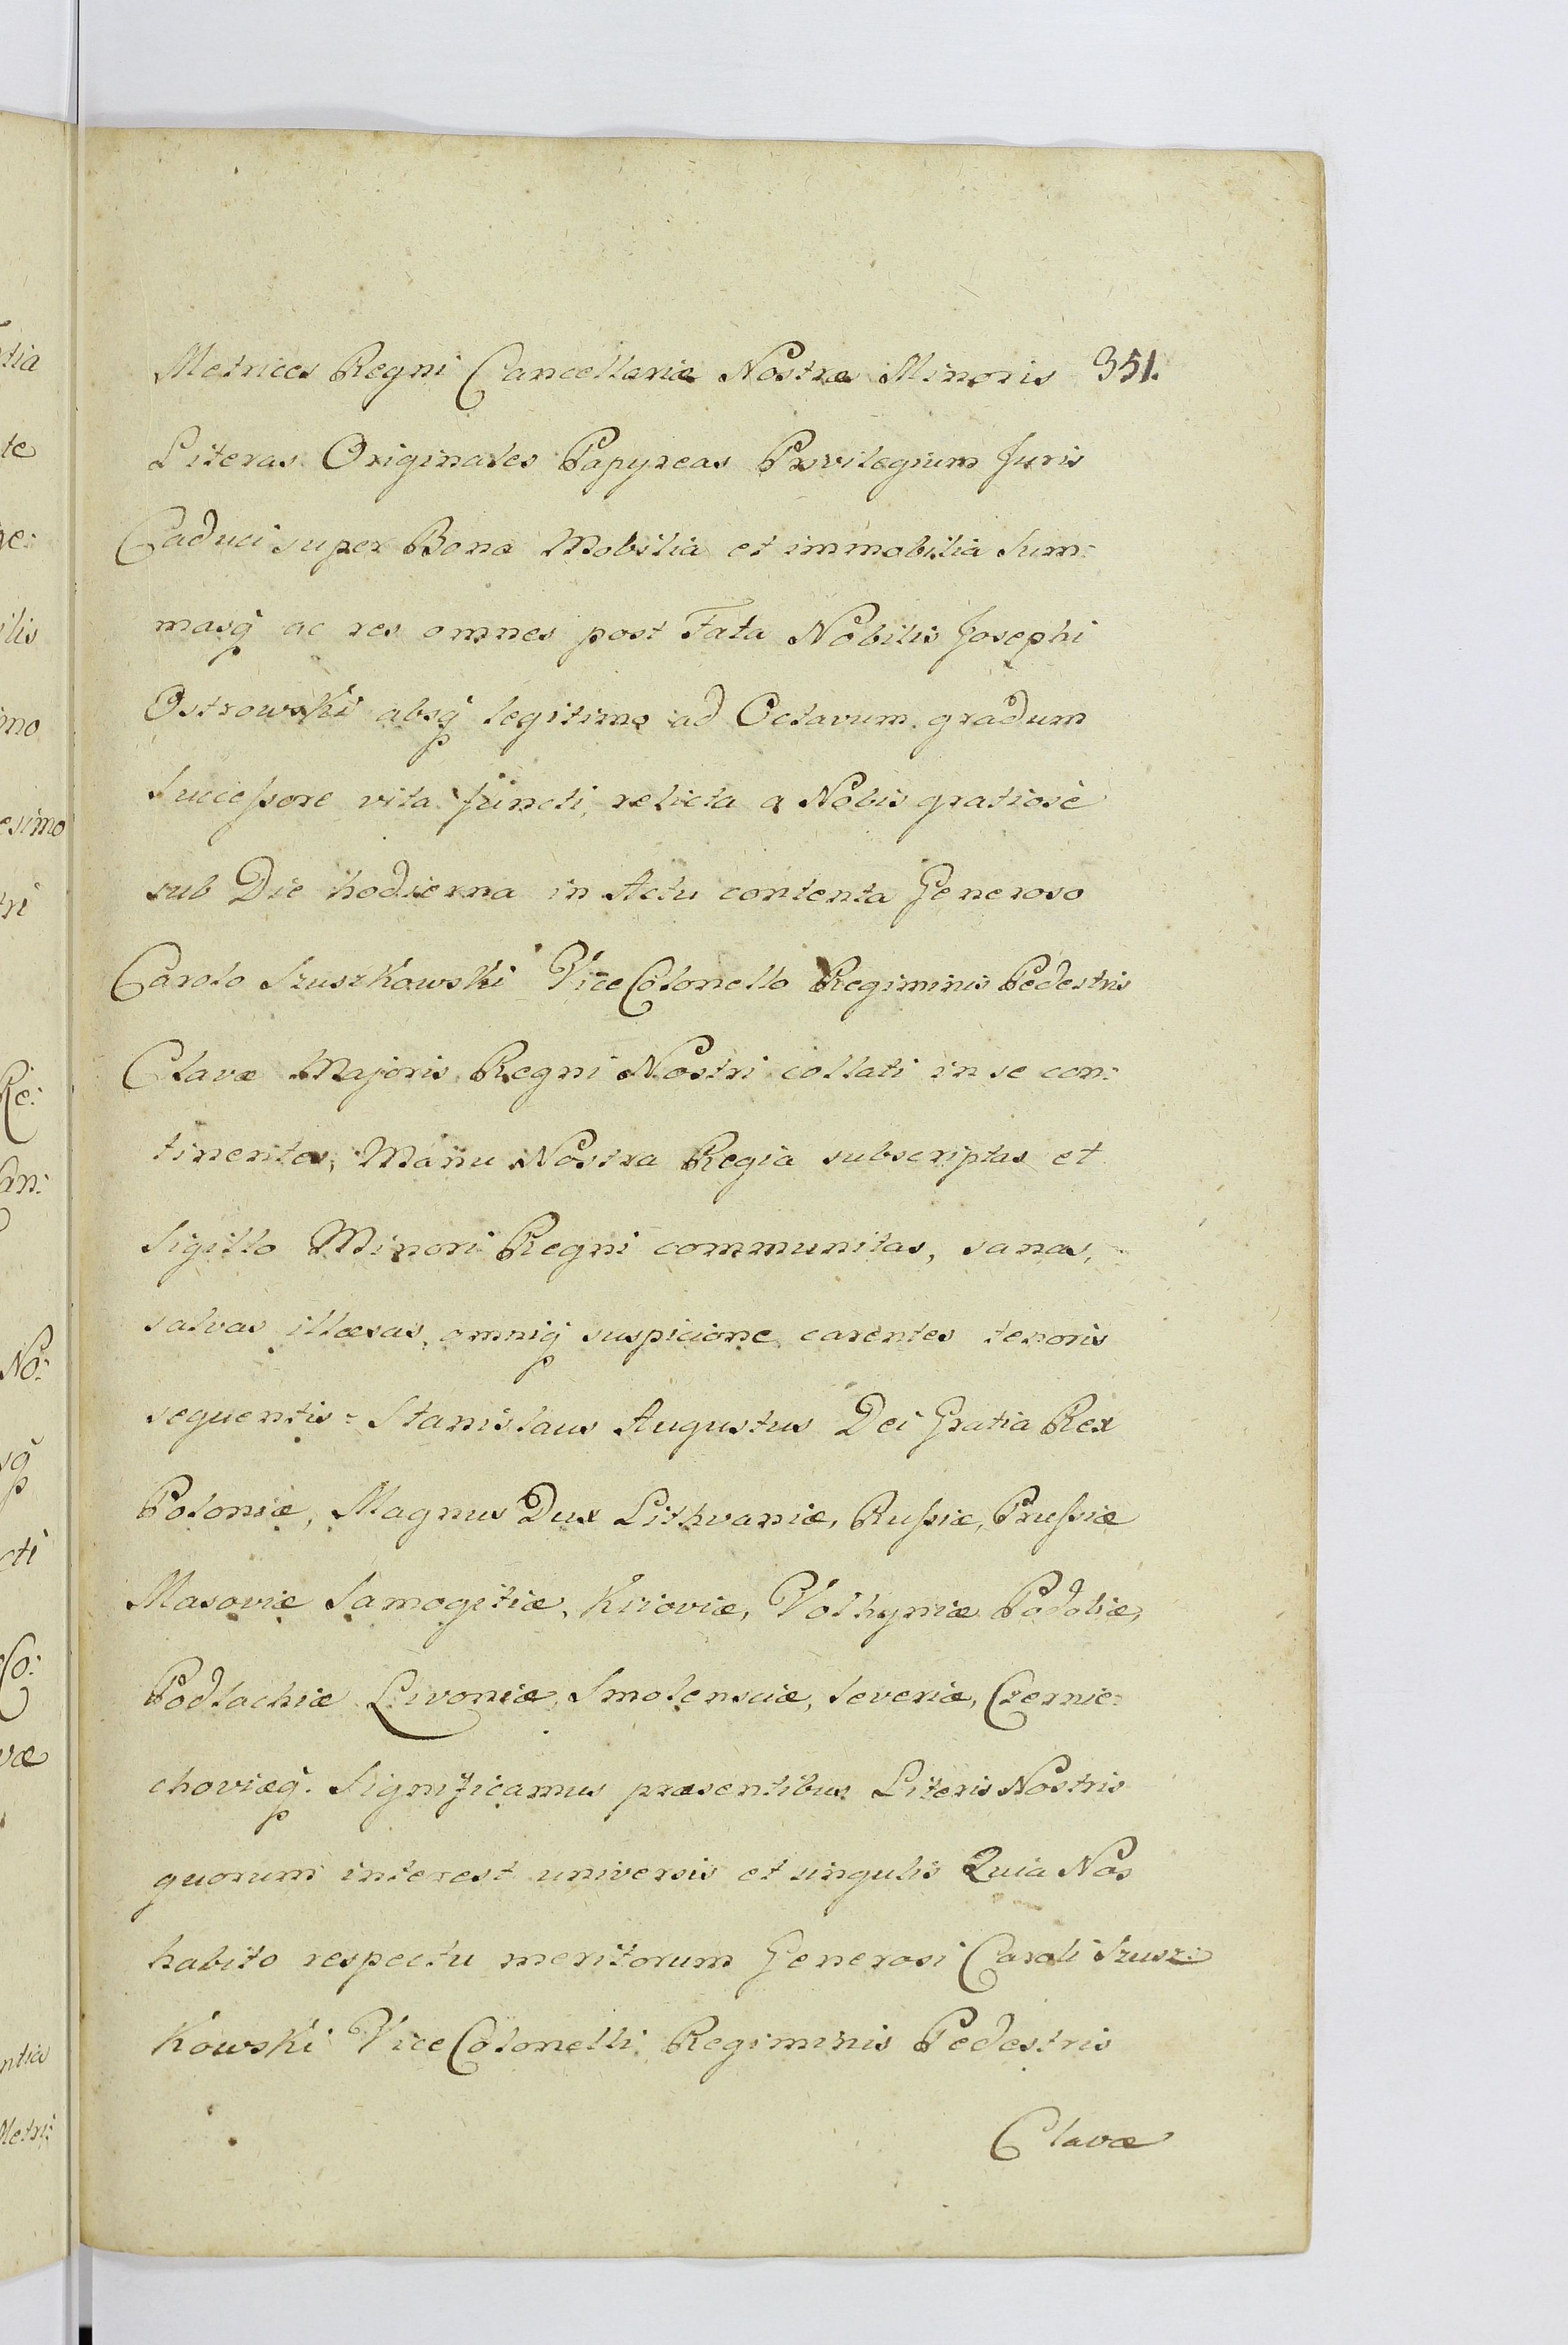 Metrices Regni Cancellariæ Nostræ Minoris 351.
Literas Originales Papyreas Privilegium Juris
Caduci super Bona Mobilia et immobilia Sum:
masq̃ ac res omnes post Fata Nobilis Josephi
Ostrowski absq̃ legitimo ad Octavum gradum
Succeſsore vita functi, relicta a Nobis gratiosè
sub Die hodierna in Actu contenta Generoso
Carolo Szuszkowski ViceColonello Regiminis Pedestris
Clavæ Majoris Regni Nostri collati in se con:
tinentes, Manu Nostra Regia subscriptas et
Sigillo Minori Regni communitas, sanas,
salvas illæsas, omniq̃ suspicione carentes tenoris
sequentis = Stanislaus Augustus Dei Gratia Rex
Poloniæ, Magnus Dux Lithvaniæ, Ruſsiæ, Pruſsiæ
Masoviæ Samogitiæ, Kijoviæ, Volhyniæ Podoliæ,
Podlachiæ Livoniæ, Smolensciæ, Severiæ, Czernie:
choviæq̃. Significamus præsentibus Literis Nostris
quorum interest universis et singulis Quia Nos
habito respectu meritorum Generosi Caroli Szusz:
Kowski ViceColonelli Regiminis Pedestris
Clavæ